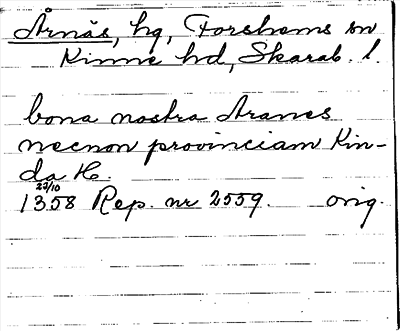 Årnäs, hg, Forshems sn
Kinne hd, Skarab. l.
bona nostra Aranes
necnon provinciam Kin-
da H.
23/10
1358 Rep. nr 2559. orig.